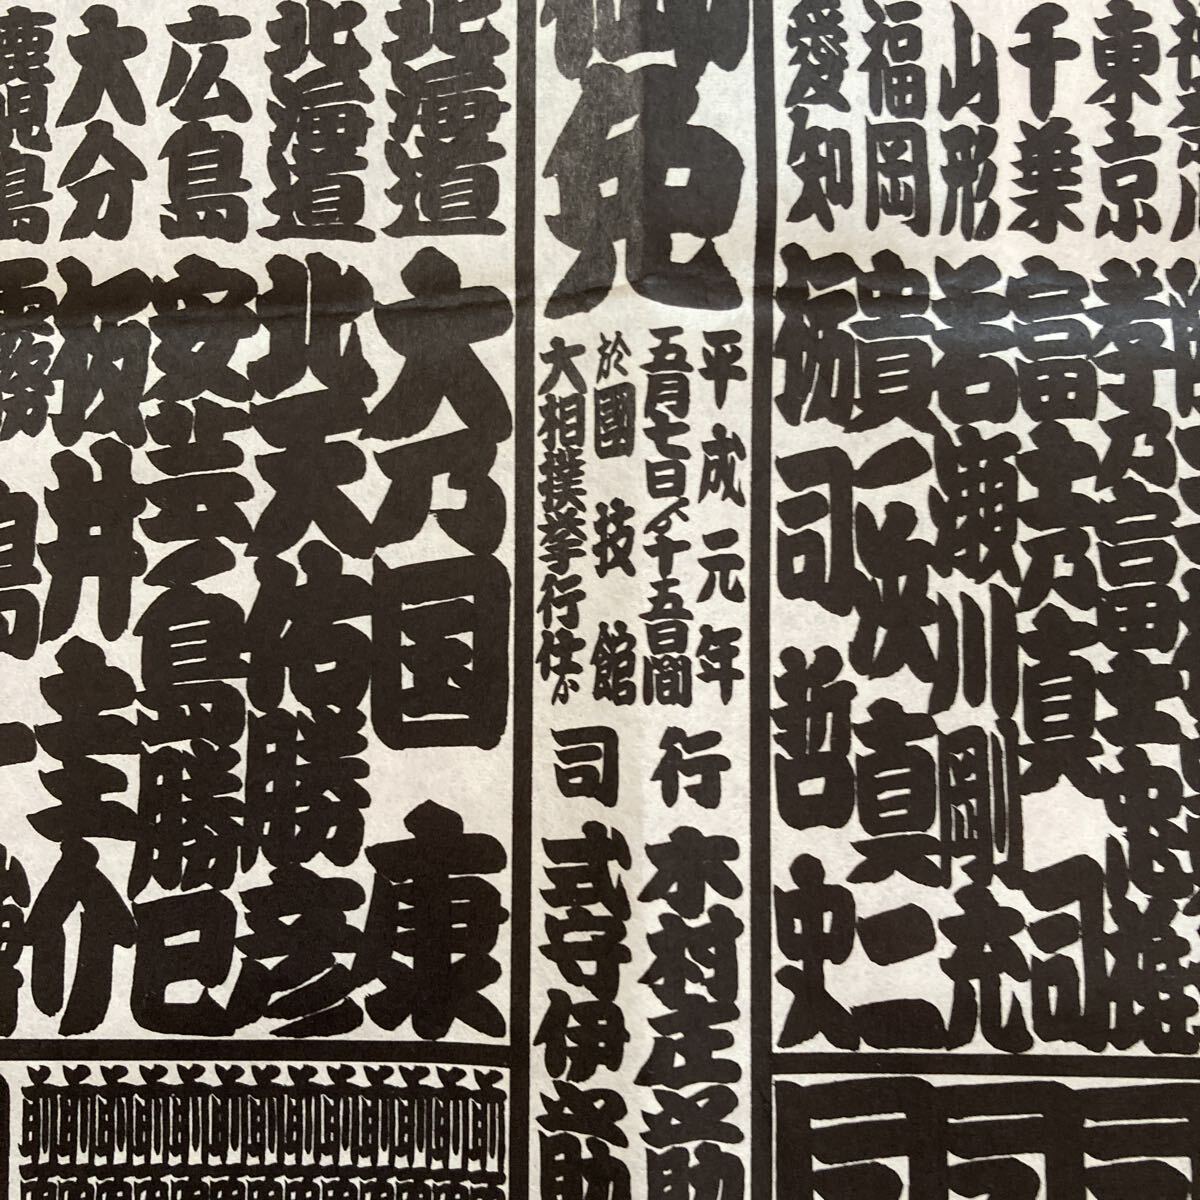 東京
千葉
山形
福岡
愛知
孝乃富士忠雄
富士乃真司
若瀬川剛充
貴ノ浜真二
栃司哲史
御免
平成元年
五月七日ゟ十五日間
於國技館
大相撲挙行仕候
行
木村庄之助
司
式守伊之助
北海道
北海道
広島
大分
鹿児島
大乃国康
北天佑勝彦
安芸ノ島勝巳
板井圭介
霧島一
前前前前前前前前前前前前前